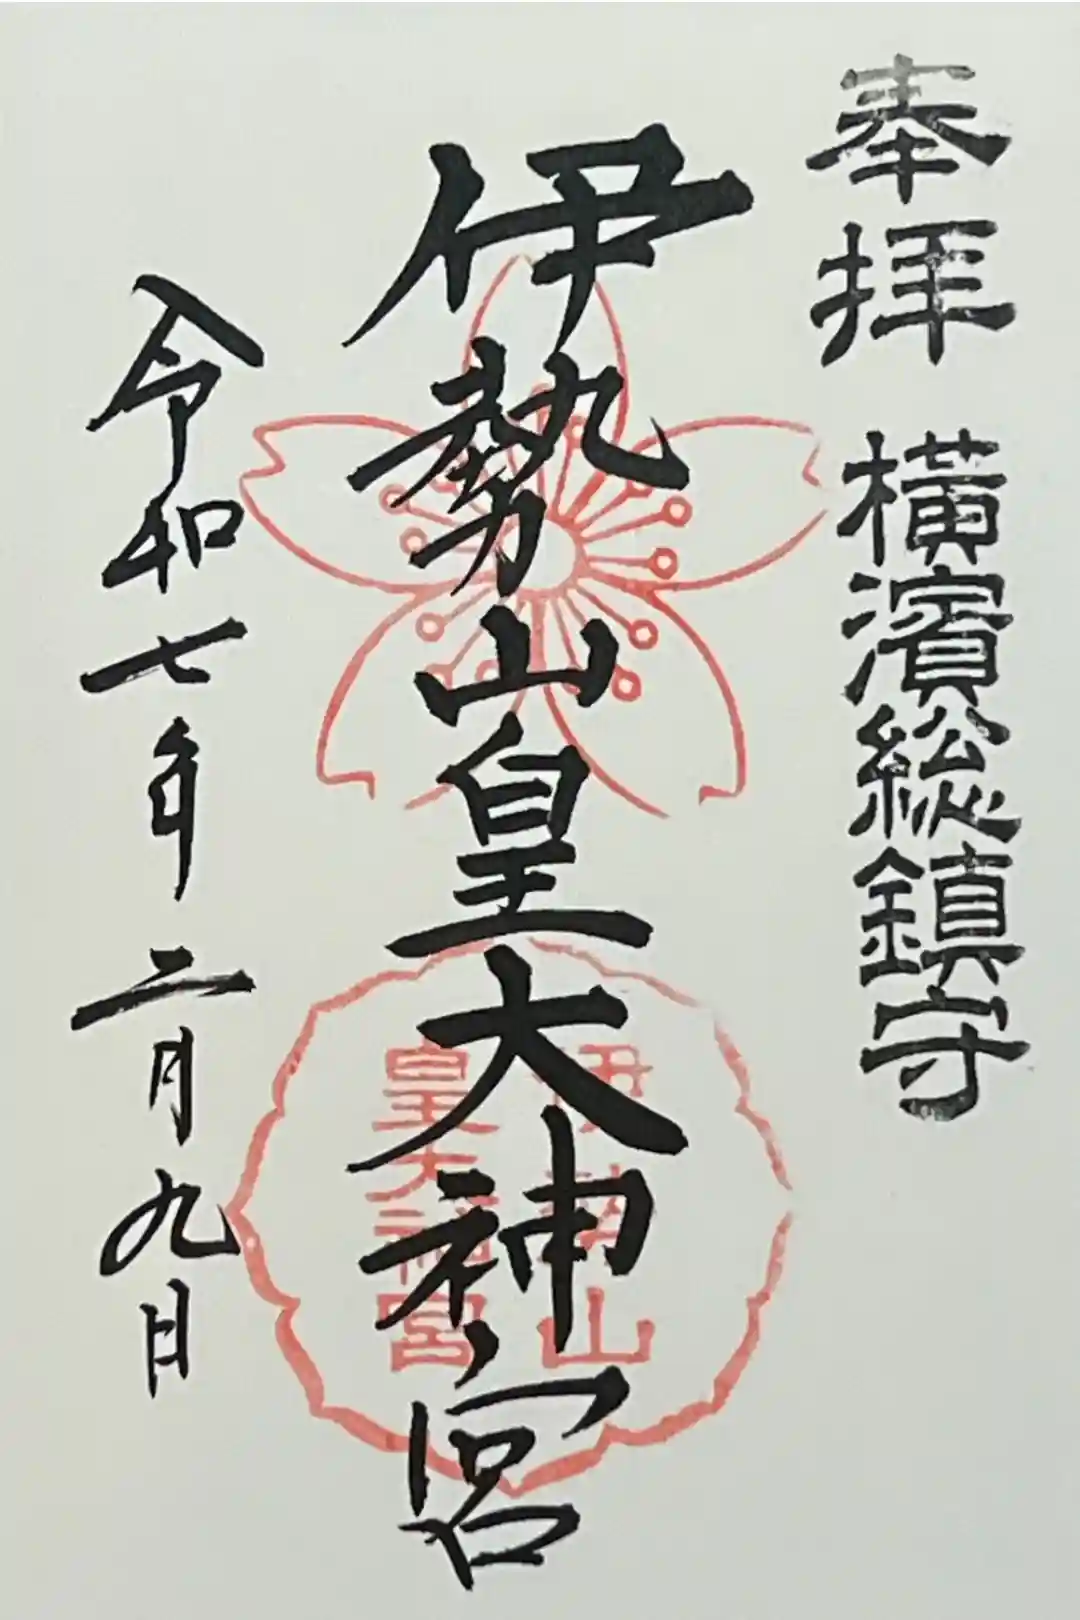 奉拝　横濱総鎮守
伊勢山皇大神宮
伊勢山
皇大神宮
令和七年二月九日